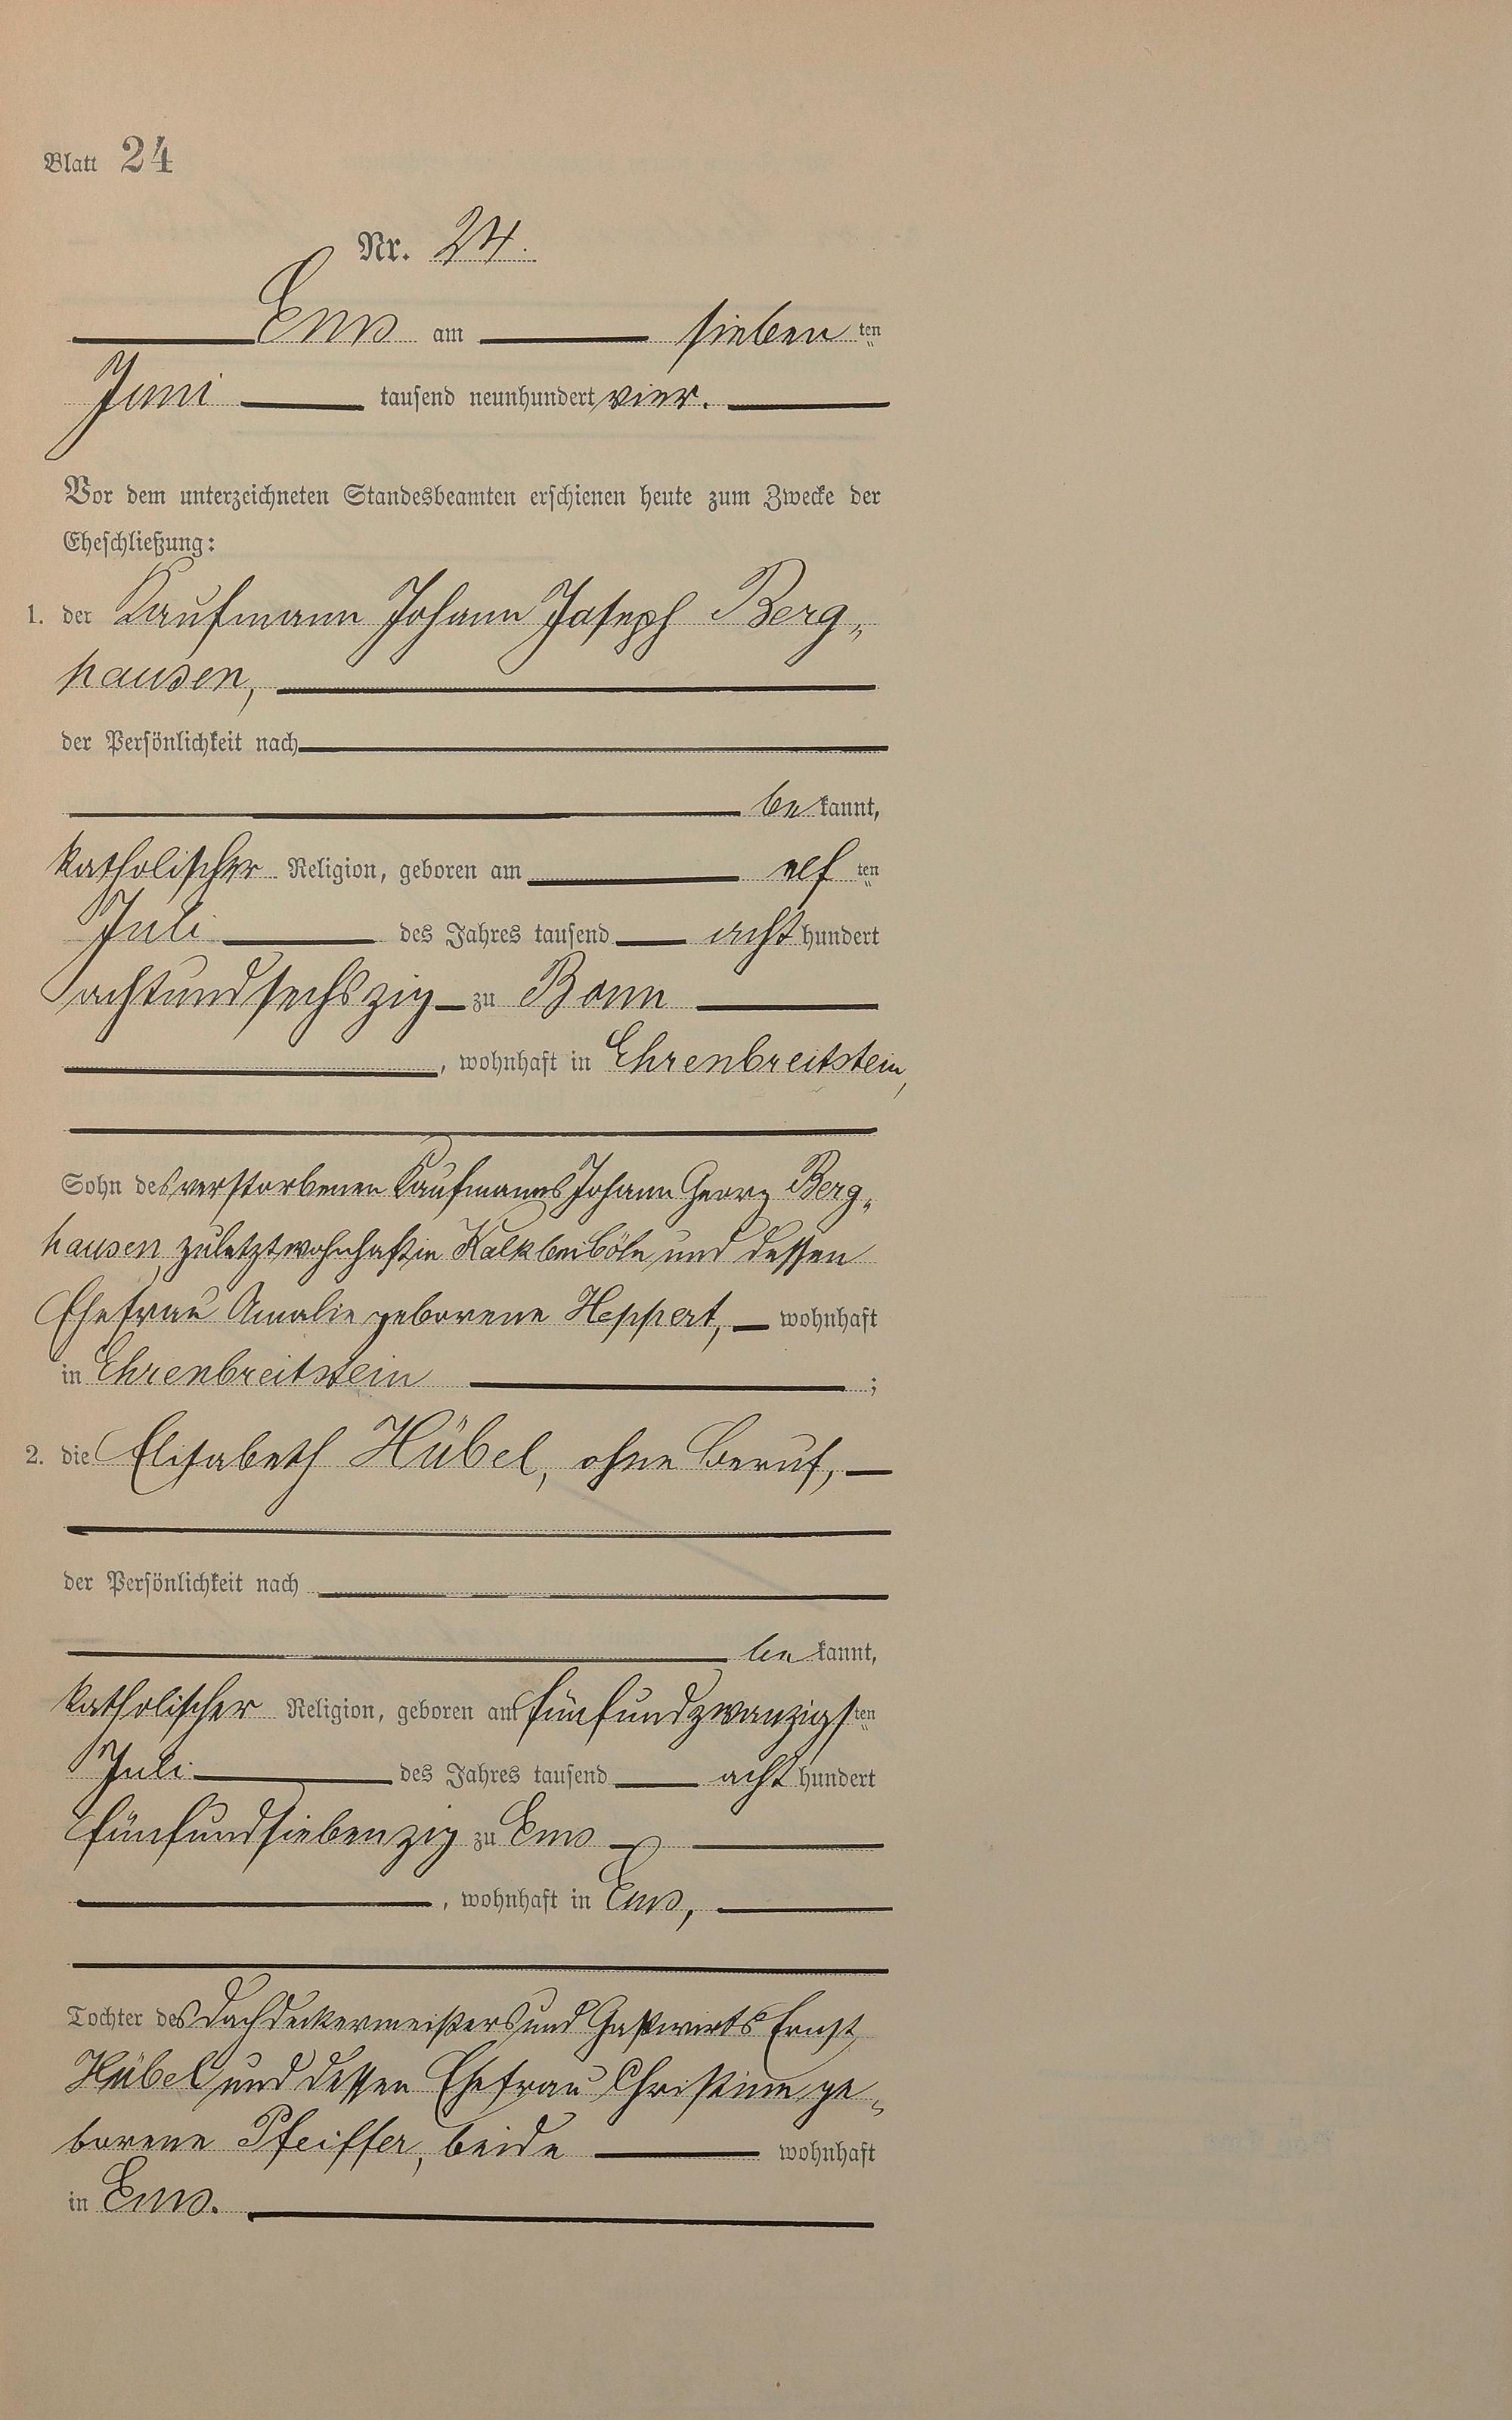 Blatt 24
Nr. 24.
Ems am sieben ten
Juni tausend neunhundert vier.
Vor dem unterzeichneten Standesbeamten erschienen heute zum Zwecke der
Eheschließung:
1. der Kaufmann Johann Joseph Berg-
hausen,
der Persönlichkeit nach
be kannt,
katholischer Religion, geboren am elf ten
Juli des Jahres tausend acht hundert
achtundsechszig zu Bonn
, wohnhaft in Ehrenbreitstein,
Sohn des verstorbenen Kaufmannes Johann Georg Berg-
hausen, zuletzt wohnhaft in Kalk bei Cöln und dessen
Ehefrau Amalie geborene Heppert, wohnhaft
in Ehrenbreitstein ;
2. die Elisabeth Hübel, ohne Beruf,
der Persönlichkeit nach
be kannt,
katholischer Religion, geboren am fünfundzwanzigs ten
Juli des Jahres tausend acht hundert
fünfundsiebenzig zu Ems
, wohnhaft in Ems,
Tochter des Dachdeckermeisters und Gastwirts Ernst
Hübel und dessen Ehefrau Christine ge-
borene Pfeiffer, beide wohnhaft
in Ems.